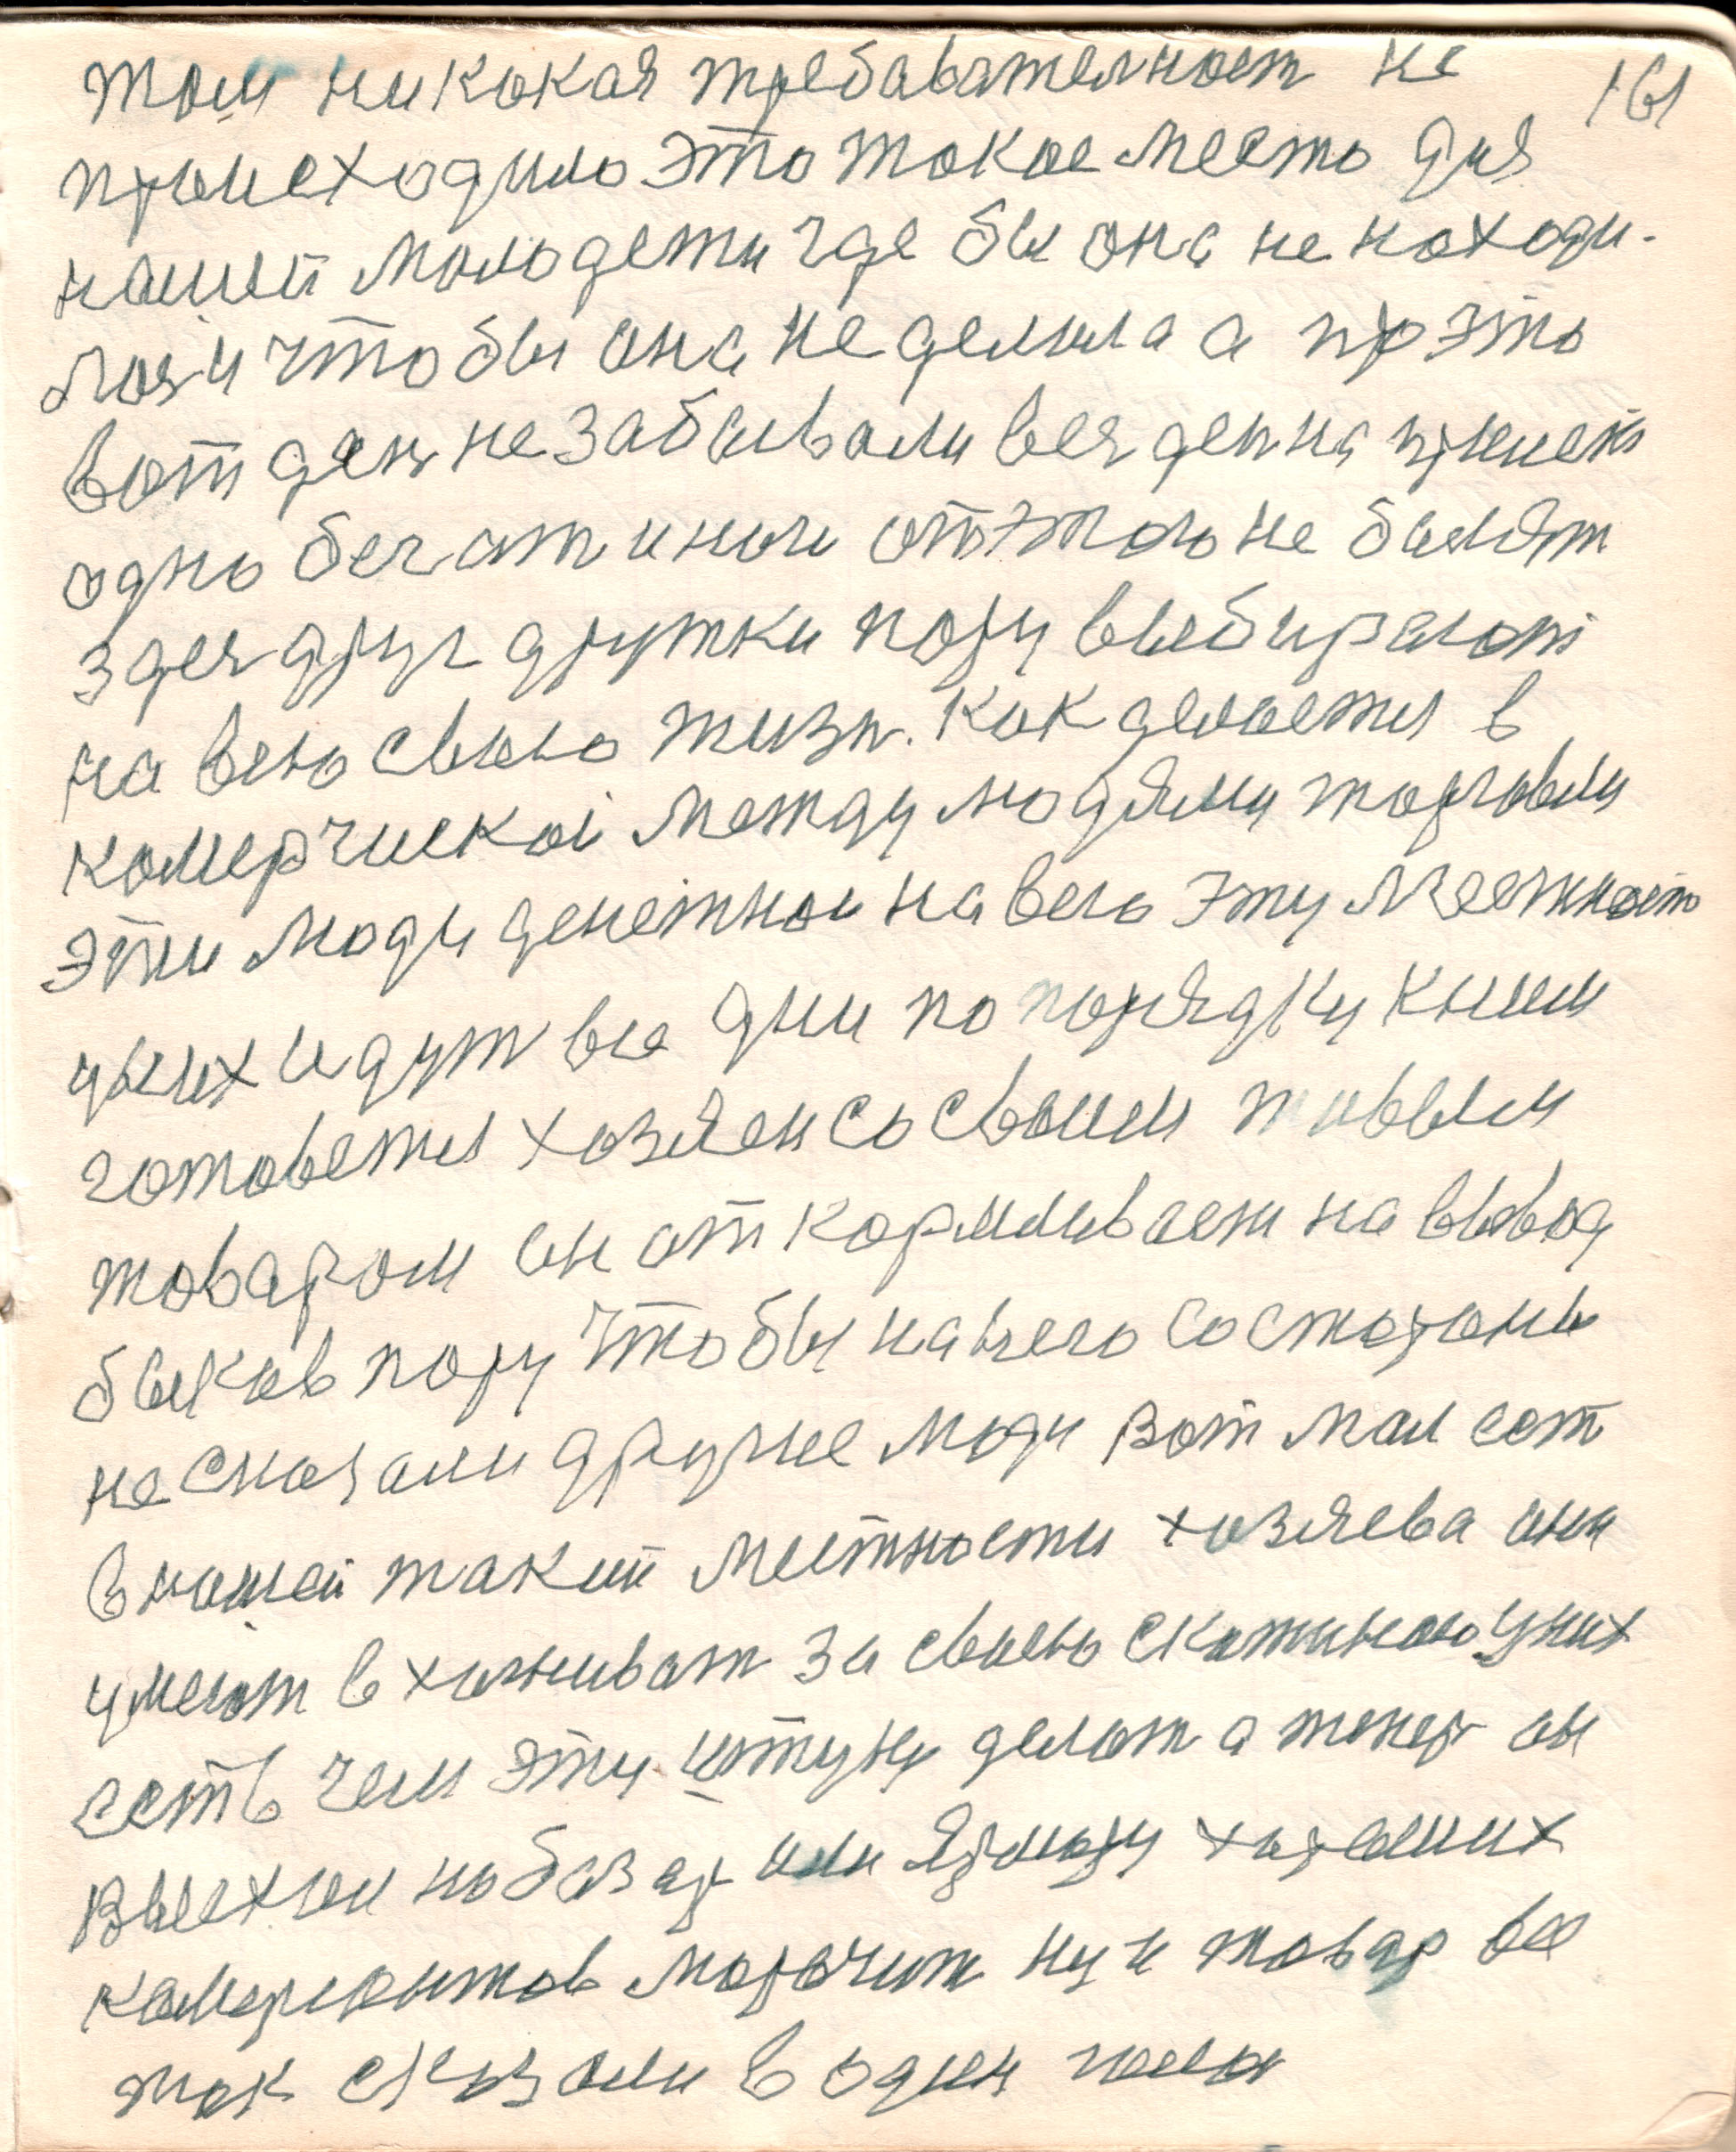 161
том никокая требавятелност не
происходило это токое место для
нашей молодежи где бы она не находи-
лась и что бы она не делала а про это
вот ден не забывали весь ден на
одно бегат и ноги от этого не болят
здес друг дружки пору выбирают
на всю свою жизн. как делается в
комерческой между людями торговли
эти люди денежнои на всю эту местност
у них идут все дни по порядку к ним
готовется хозяен со своим живым
товаром он откормливает на вывод
быков пору чтобы на него со стороны
не сказали другие люди вот мол ест
в нашей такий местности хозяева они
умеют вхаживат за своею скотиною у них
есть чем эту штуку делат а теперь он
выехал на базар или Ярмарку хороших
комерсантов морочит ну и товар все
так сказали в один голос